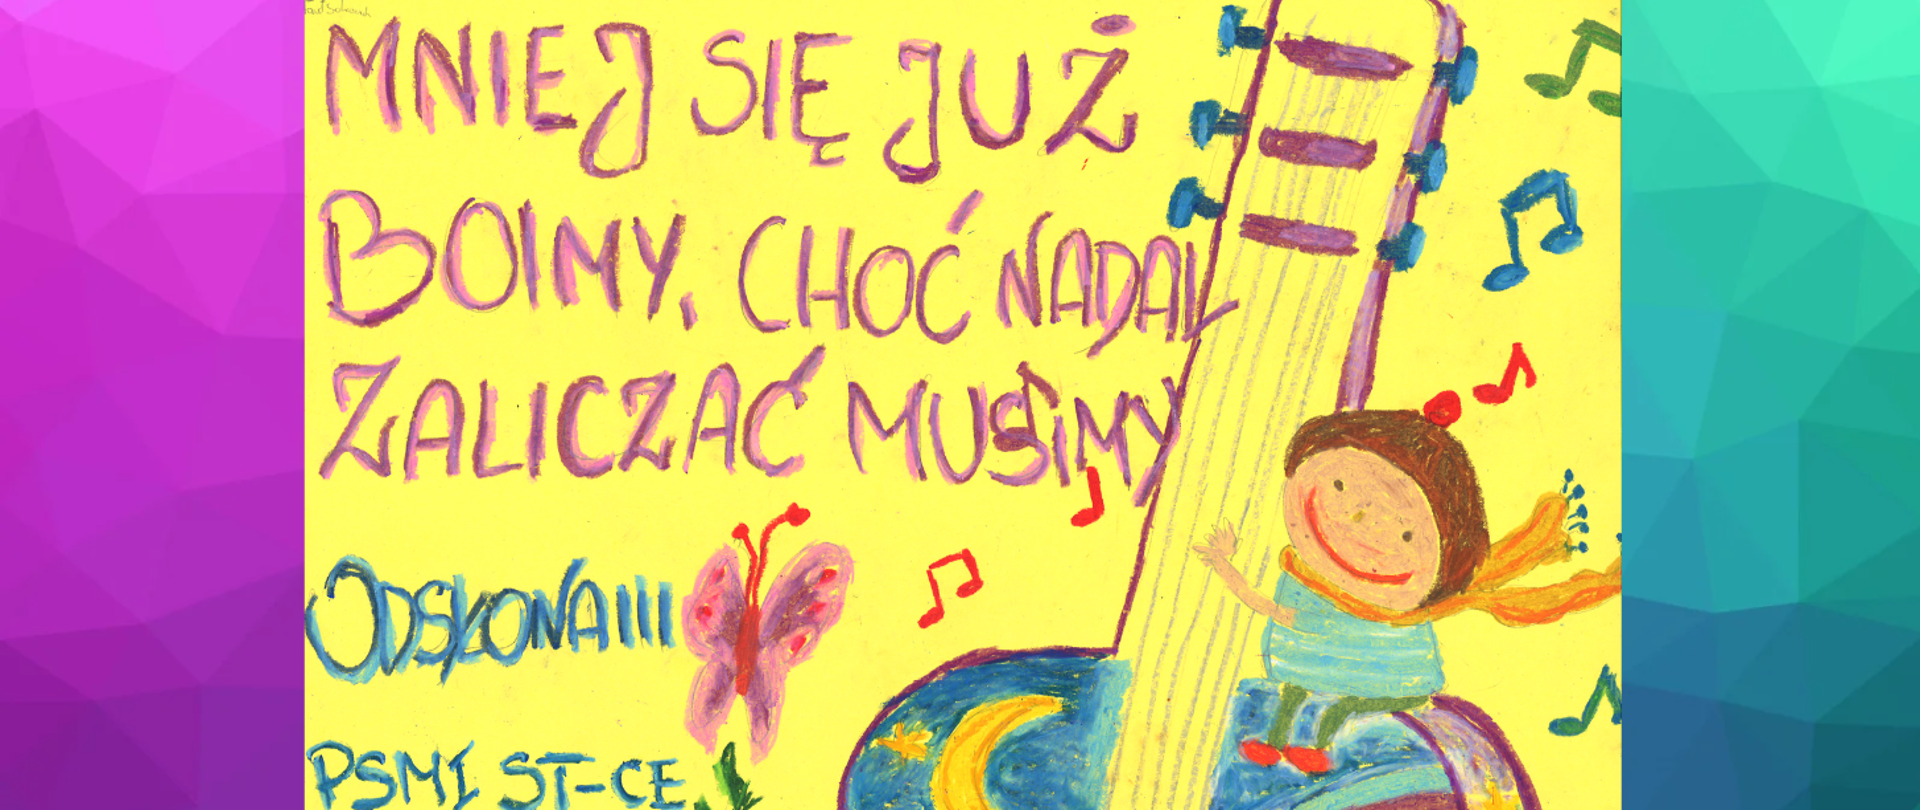 MNIEJ SIĘ JUŻ
BOIMY, CHOĆ NADAL
ZALICZAĆ MUSIMY
ODSŁONA III
PSMI ST-CE